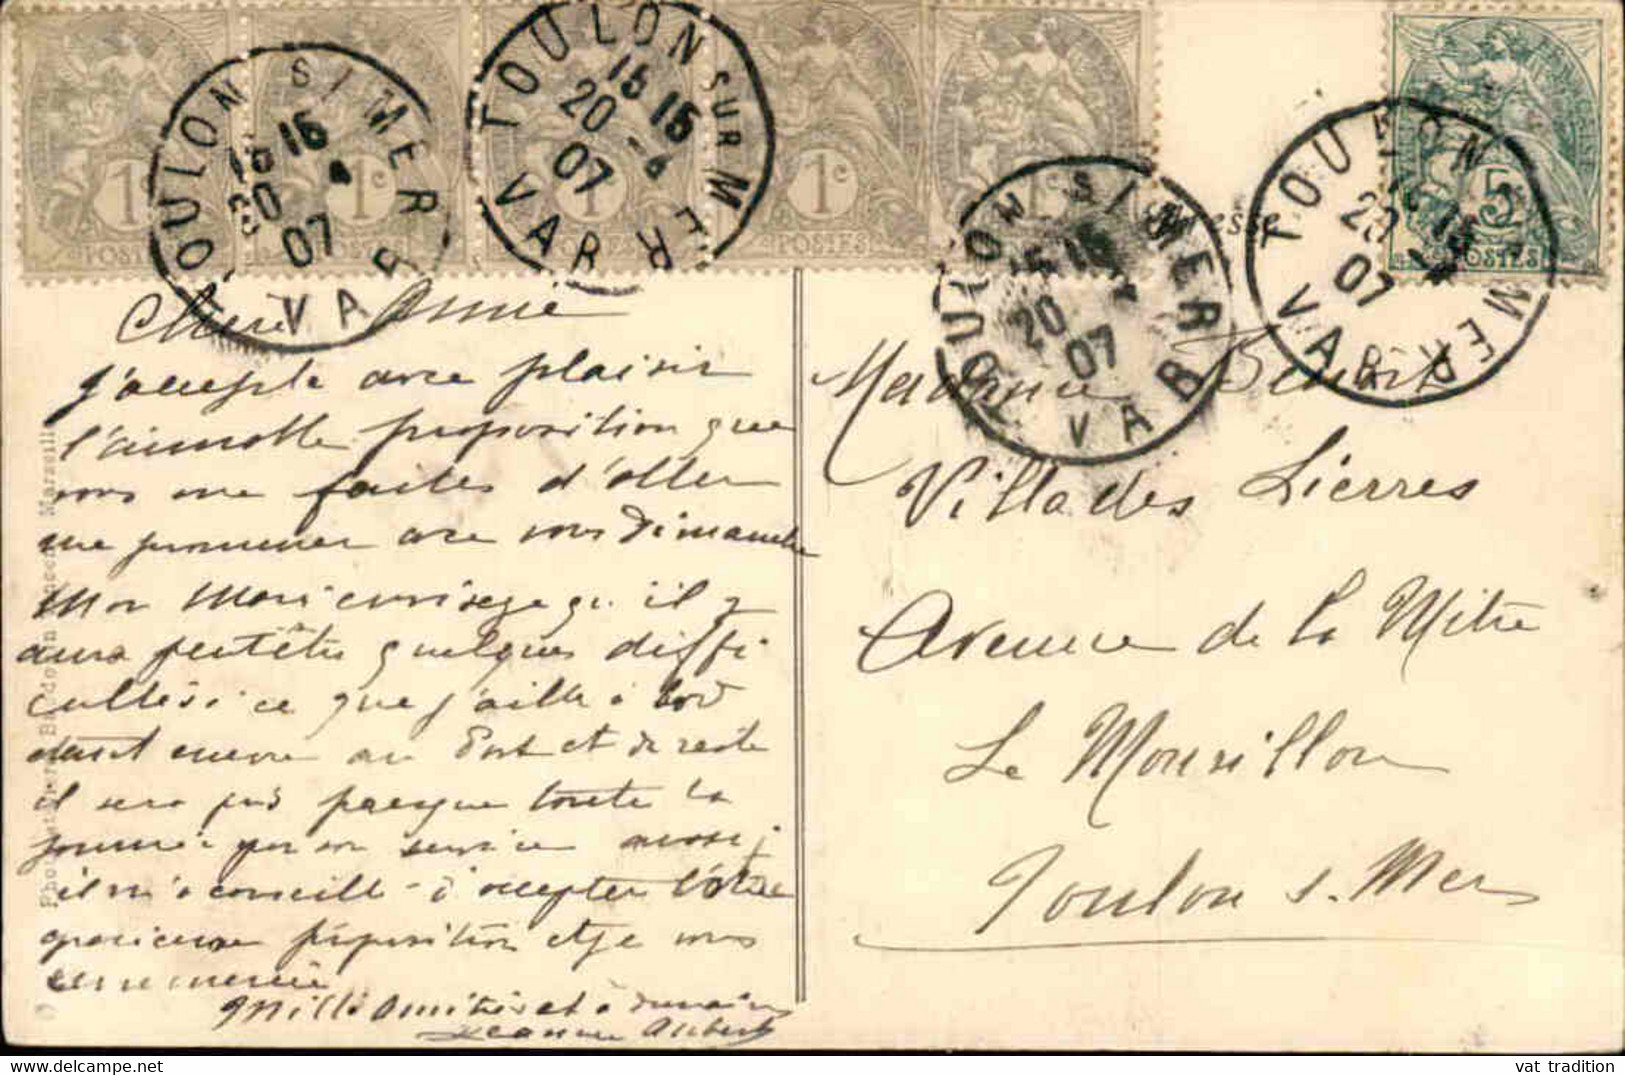 TOULON S/MER
15 15
20
07
VAR
TOULON SUR MER
15 15
20 -4
07
VAR
TOULON S/MER
15 15
20
07
VAR
TOULON S MER
20
07
VAR
1c 1c 1c 1c
POSTES
5c
POSTES
Chère Amie
j'accepte avec plaisir
l'aimable proposition que
vous me faites d'aller
me promener avec vous Dimanche
Mon Mari envisage qu'il y
aura peutêtre quelques diffi
cultés si ce que j'aille à bord
étant encore au Port et de reste
il sera pris presque toute la
journée par son service aussi
il m'a conseillé d'accepter Votre
gracieuse préposition et je vous
en remercie
Mille Amitiés et à demain
Jeanne Aubert
Madame Benoit
Villa des Lierres
Avenue de la Mitre
Le Mourillon
Toulon s. Mer
Marseille
vat tradition